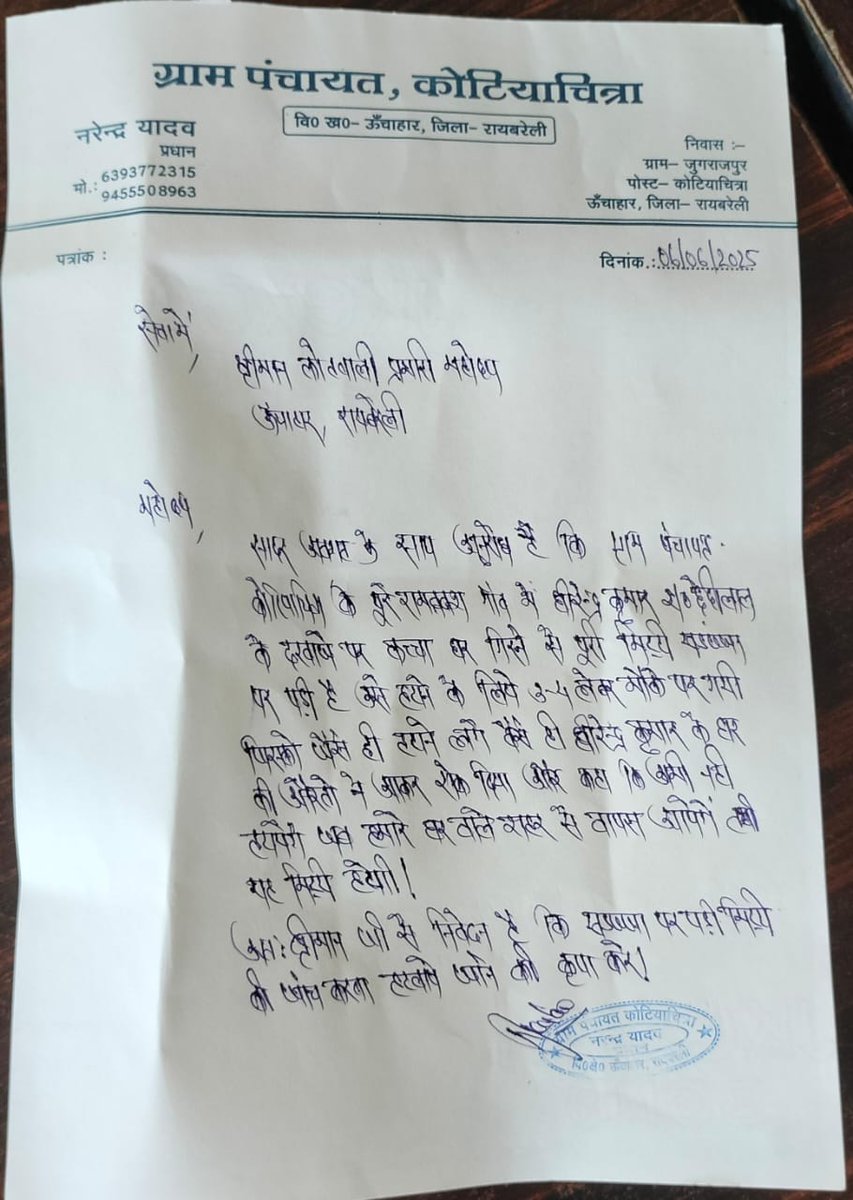 ग्राम पंचायत, कोटियाचित्रा
वि0 ख0- ऊँचाहार, जिला- रायबरेली
नरेन्द्र यादव
प्रधान
मो.: 6393772315
9455508963
निवास :-
ग्राम- जुगराजपुर
पोस्ट- कोटियाचित्रा
ऊँचाहार, जिला- रायबरेली
पत्रांक :
दिनांक.: 06/06/2025
सेवा में,
श्रीमान कोतवाली प्रभारी महोदय
ऊंचाहार, रायबरेली
महोदय,
सादर अवगत के साथ अनुरोध है कि ग्राम पंचायत
कोटियाचित्रा के पूरे रामबक्श गाँव में धीरेन्द्र कुमार
के दरवाजे पर कच्चा घर गिरने से पूरी मिट्टी खड़ण्जा
पर पड़ी है उसे हटाने के लिये 3-4 लेबर मौके पर गयी
जिसको जैसे ही हटाने लगे वैसे ही धीरेन्द्र कुमार के घर
की औरतों ने आकर रोक दिया और कहा कि अभी नही
हटायेंगे जब हमारे घर वाले शहर से वापस आयेगें तभी
यह मिट्टी हटेगी!
अतः श्रीमान जी से निवेदन है कि खड़ण्जा पर पड़ी मिट्टी
की जांच करवा हटवाये जाने की कृपा करें।
ग्राम पंचायत कोटियाचित्रा
नरेन्द्र यादव
प्रधान
वि0ख0 ऊँचाहार, रायबरेली